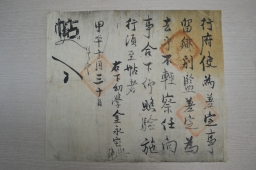 行府使爲差定事
別監差定爲
去乎不輕察任向
事合下仰照驗施
行須至帖者
右下幼學金永
甲午 月三十日
帖